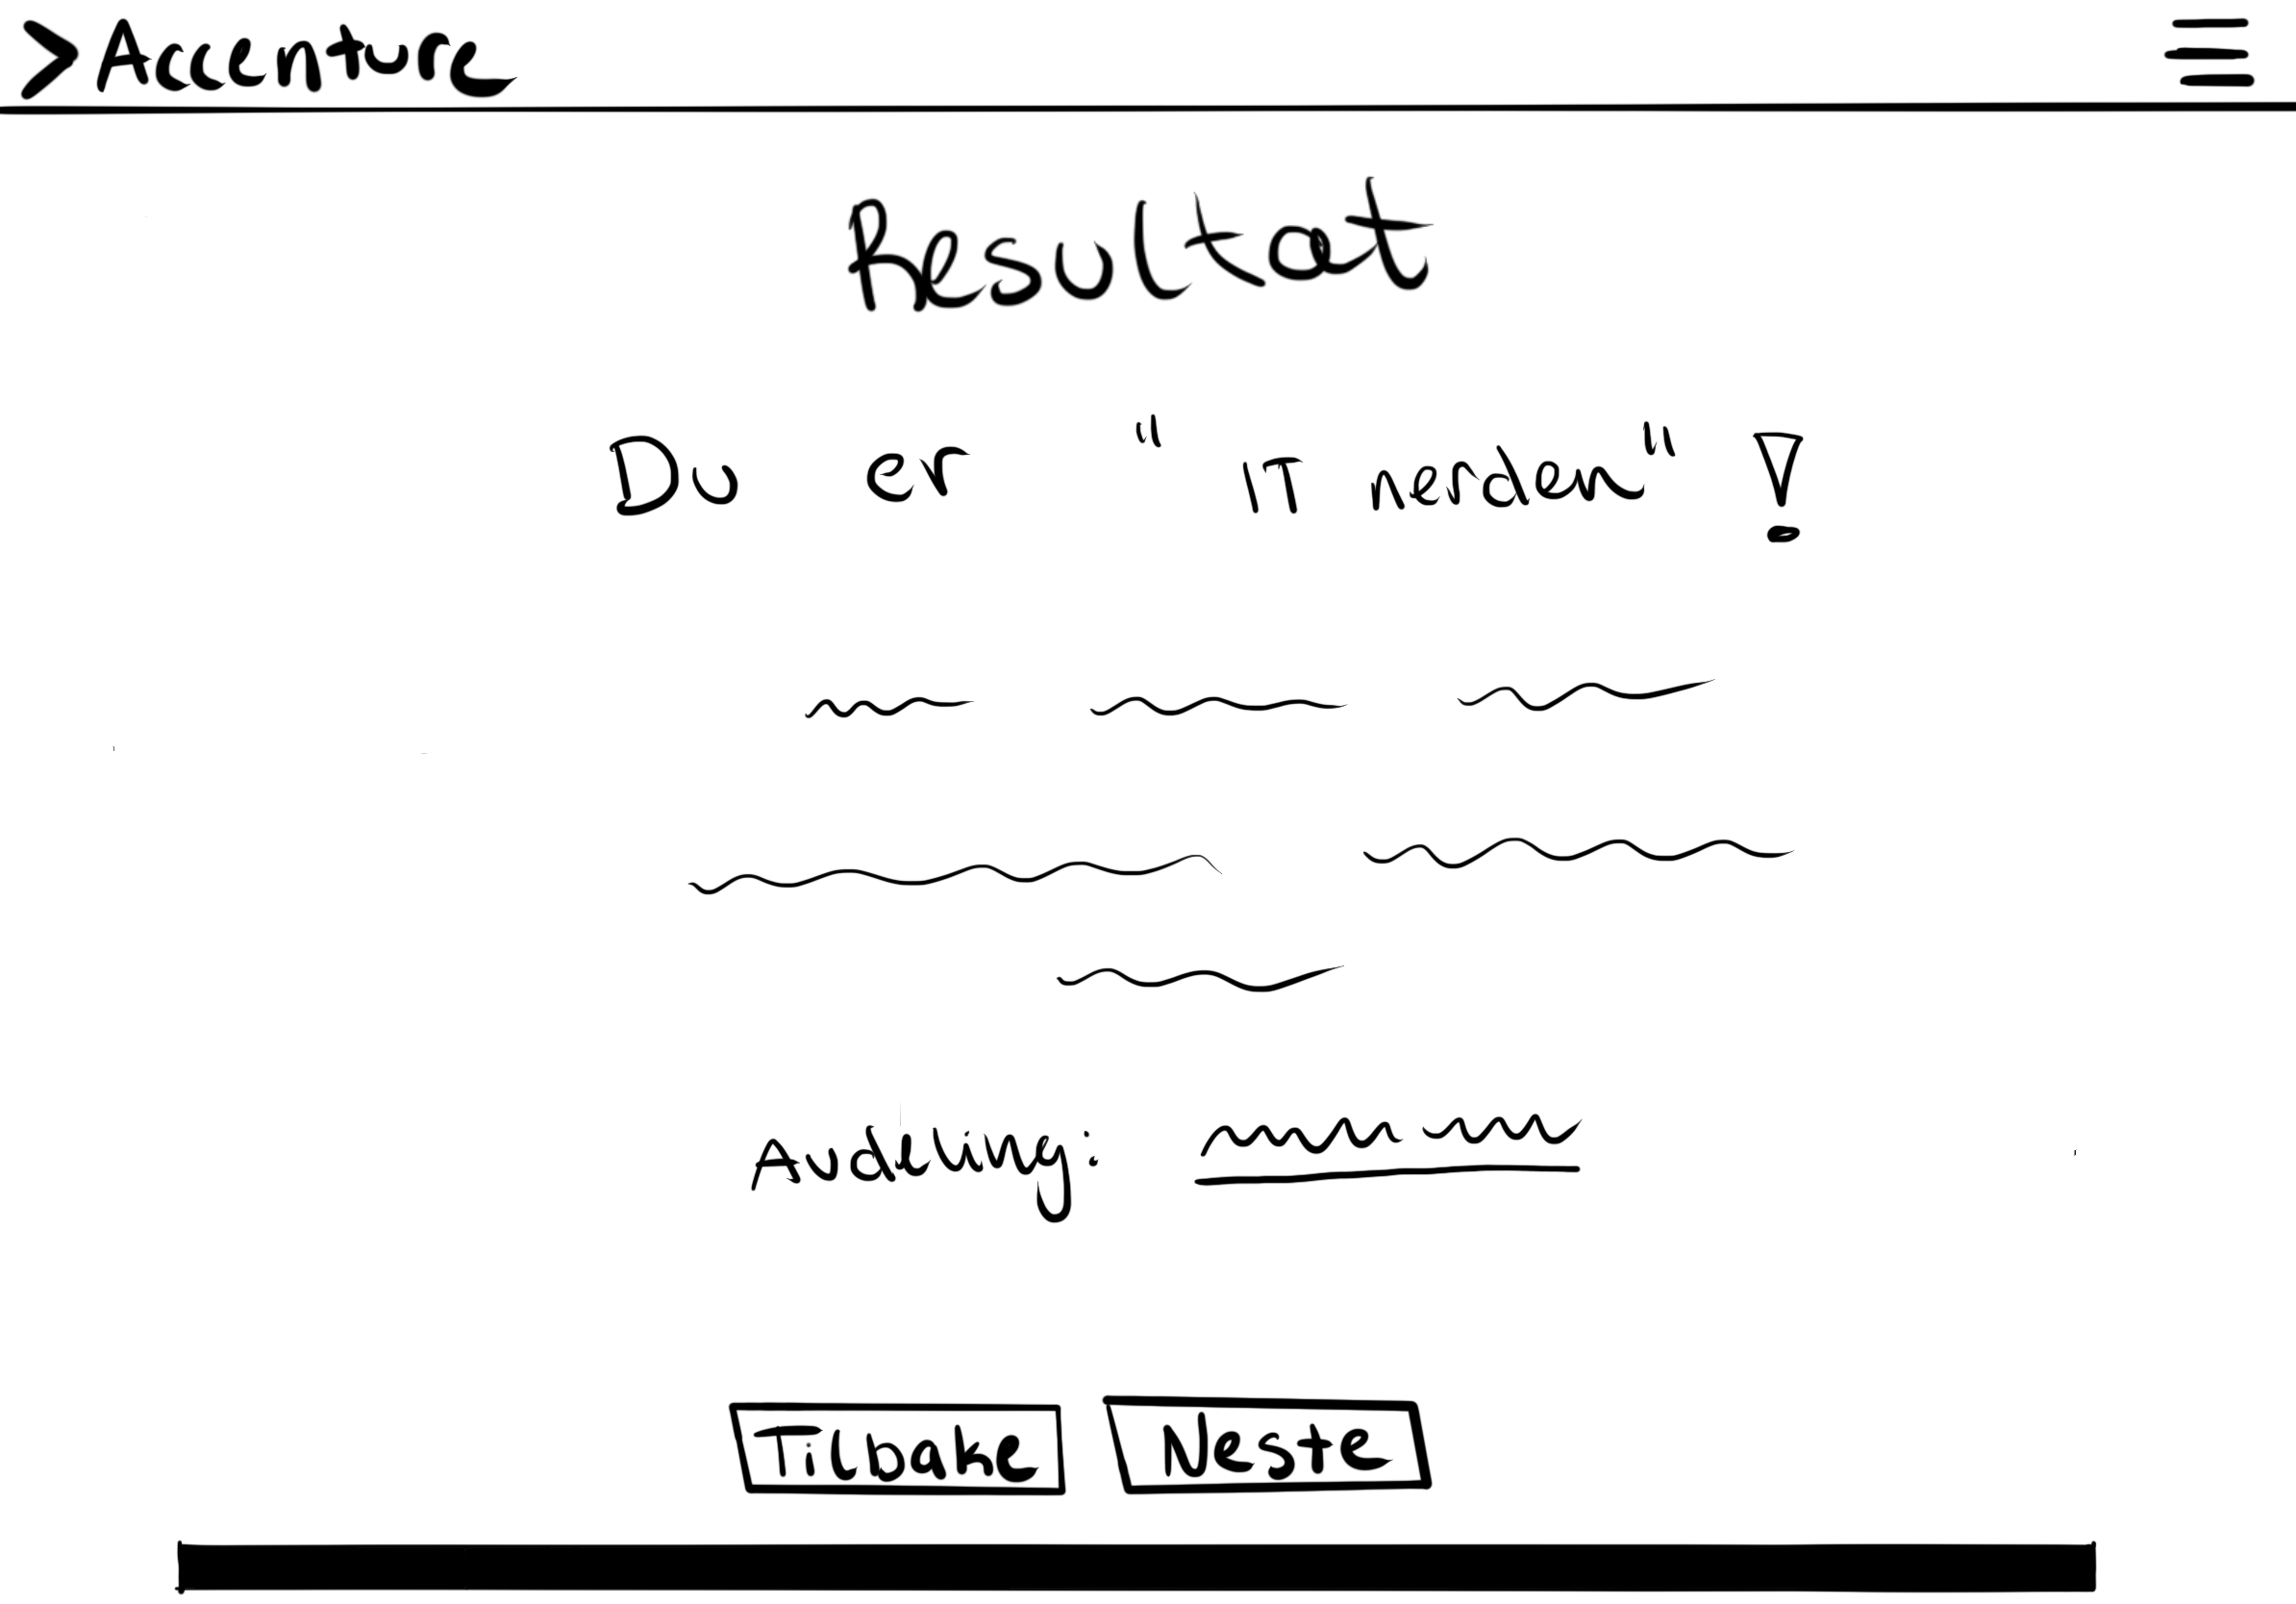 >Accenture
Resultat
Du er "IT nerden"!
Avdeling:
Tilbake
Neste